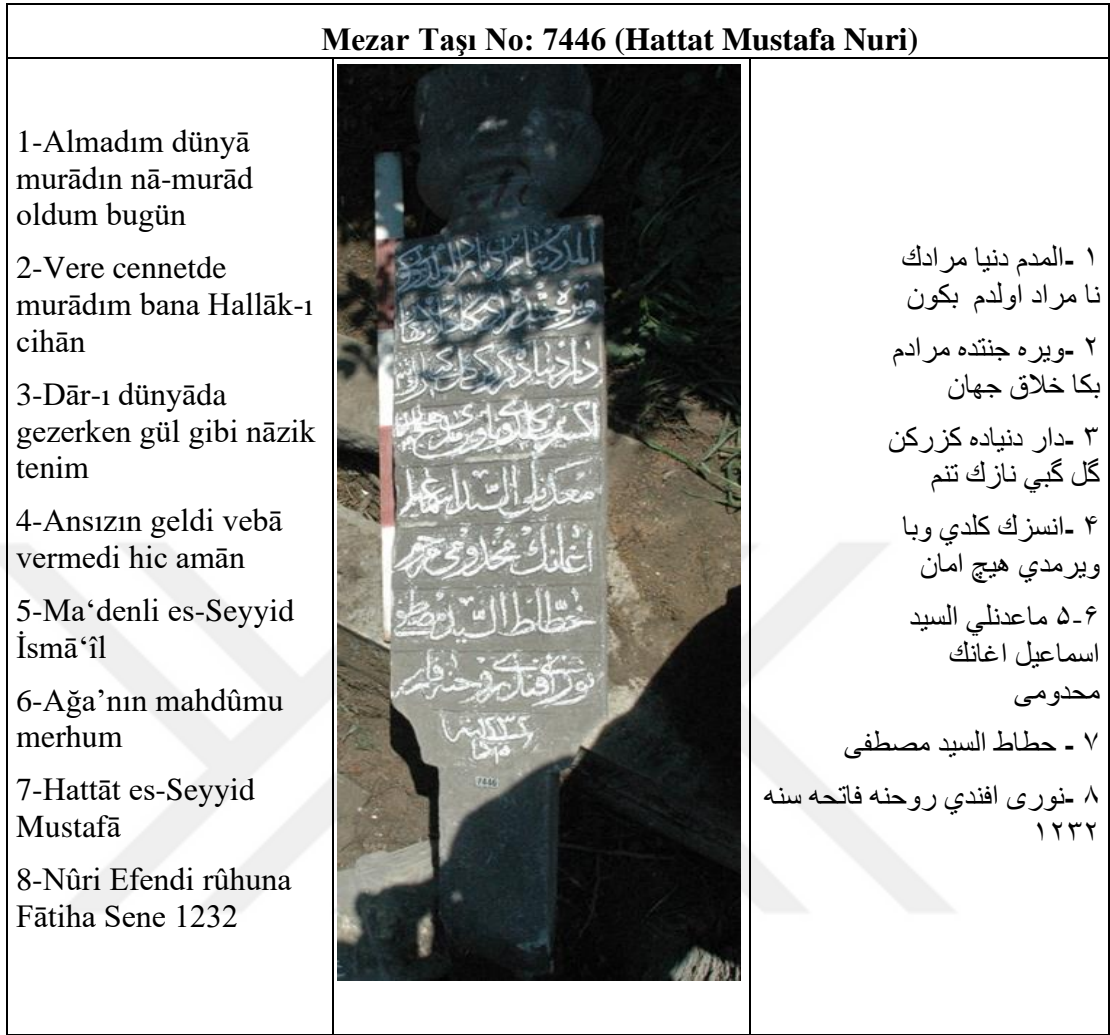 Mezar Taşı No: 7446 (Hattat Mustafa Nuri)
1-Almadım dünyā
murādın nā-murād
oldum bugün
2-Vere cennetde
murādım bana Hallāk-ı
cihān
3-Dār-ı dünyāda
gezerken gül gibi nāzik
tenim
4-Ansızın geldi vebā
vermedi hic amān
5-Ma‘denli es-Seyyid
İsmā‘îl
6-Ağa’nın mahdûmu
merhum
7-Hattāt es-Seyyid
Mustafā
8-Nûri Efendi rûhuna
Fātiha Sene 1232
معدنلى السيد اسماعيل
اغانك مخدومى مرحوم
خطاط السيد مصطفى
نورى افندى روحنه فاتحه
7446
۱ -المدم دنيا مرادك
نا مراد اولدم بكون
۲ -ويره جنتده مرادم
بكا خلاق جهان
۳ -دار دنياده كزركن
گل گبي نازك تنم
۴ -انسزك كلدي وبا
ويرمدي هيچ امان
۵-۶ ماعدنلي السيد
اسماعيل اغانك
محدومى
۷ - حطاط السيد مصطفى
۸ -نورى افندي روحنه فاتحه سنه
۱۲۳۲